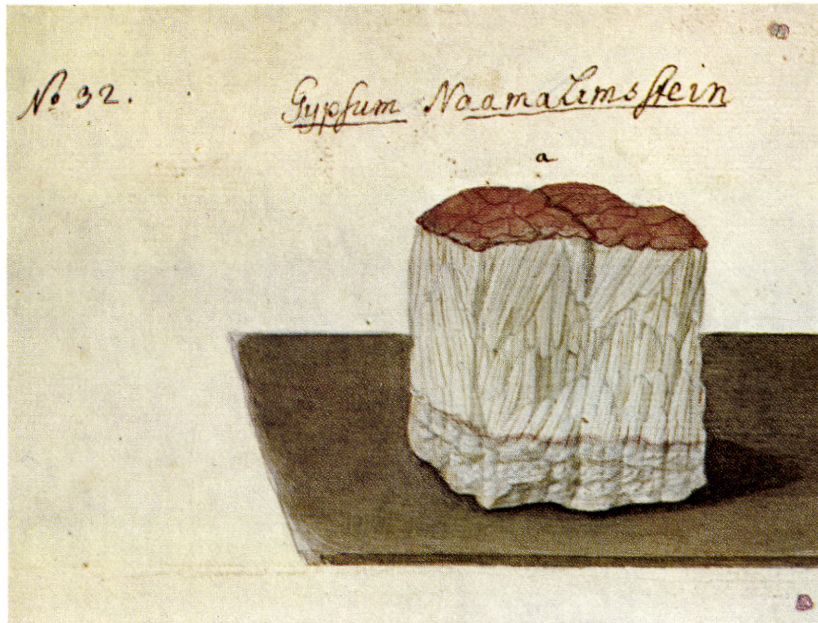 No 32.
Gypſum Naamalimsſtein
a